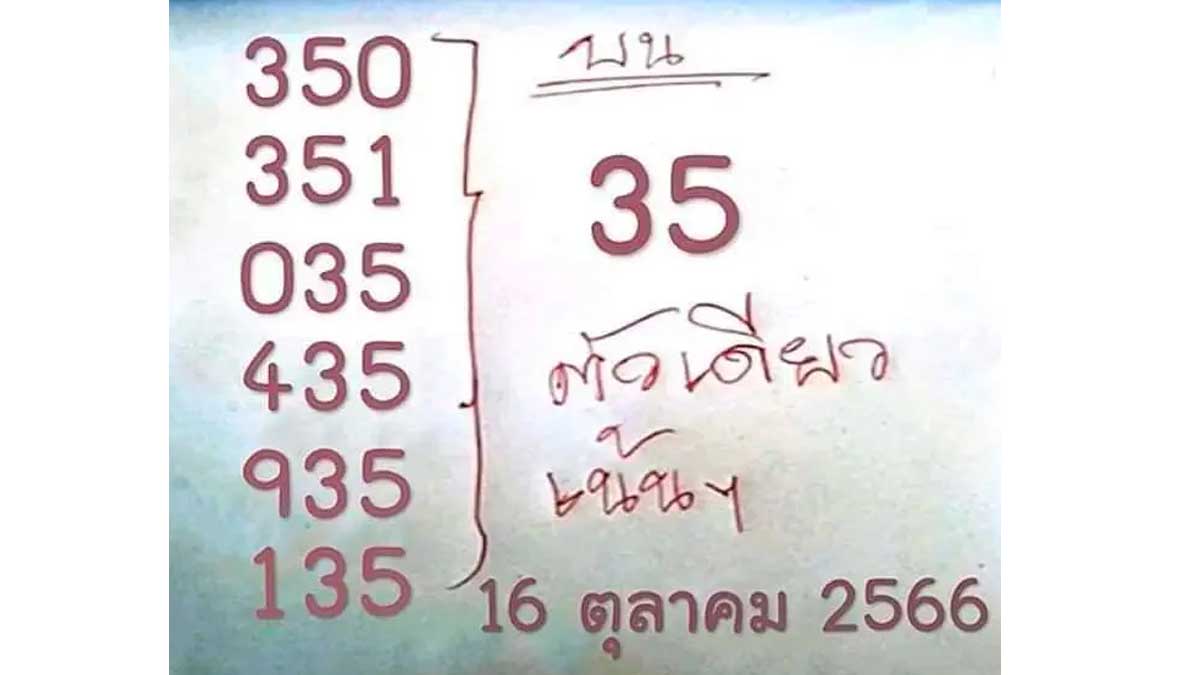 350
351
035
435
935
135
บน
35
ตัวเดียว
เน้นๆ
16 ตุลาคม 2566